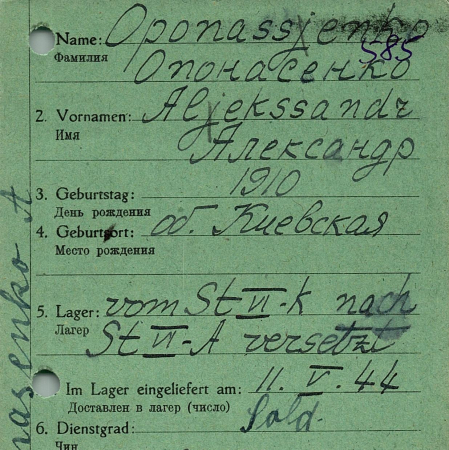 Name: Oponassjenko
Фамилия
585
Опонасенко
2. Vornamen: Aljekssandr
Имя
Александр
3. Geburtstag: 1910
День рождения
4. Geburtsort: об. Киевская
Место рождения
5. Lager: vom St VI-K nach
Лагер
St VI-A versetzt
Im Lager eingeliefert am: 11. V. 44
Доставлен в лагер (число)
6. Dienstgrad: Sold.
Чин
nasenko A